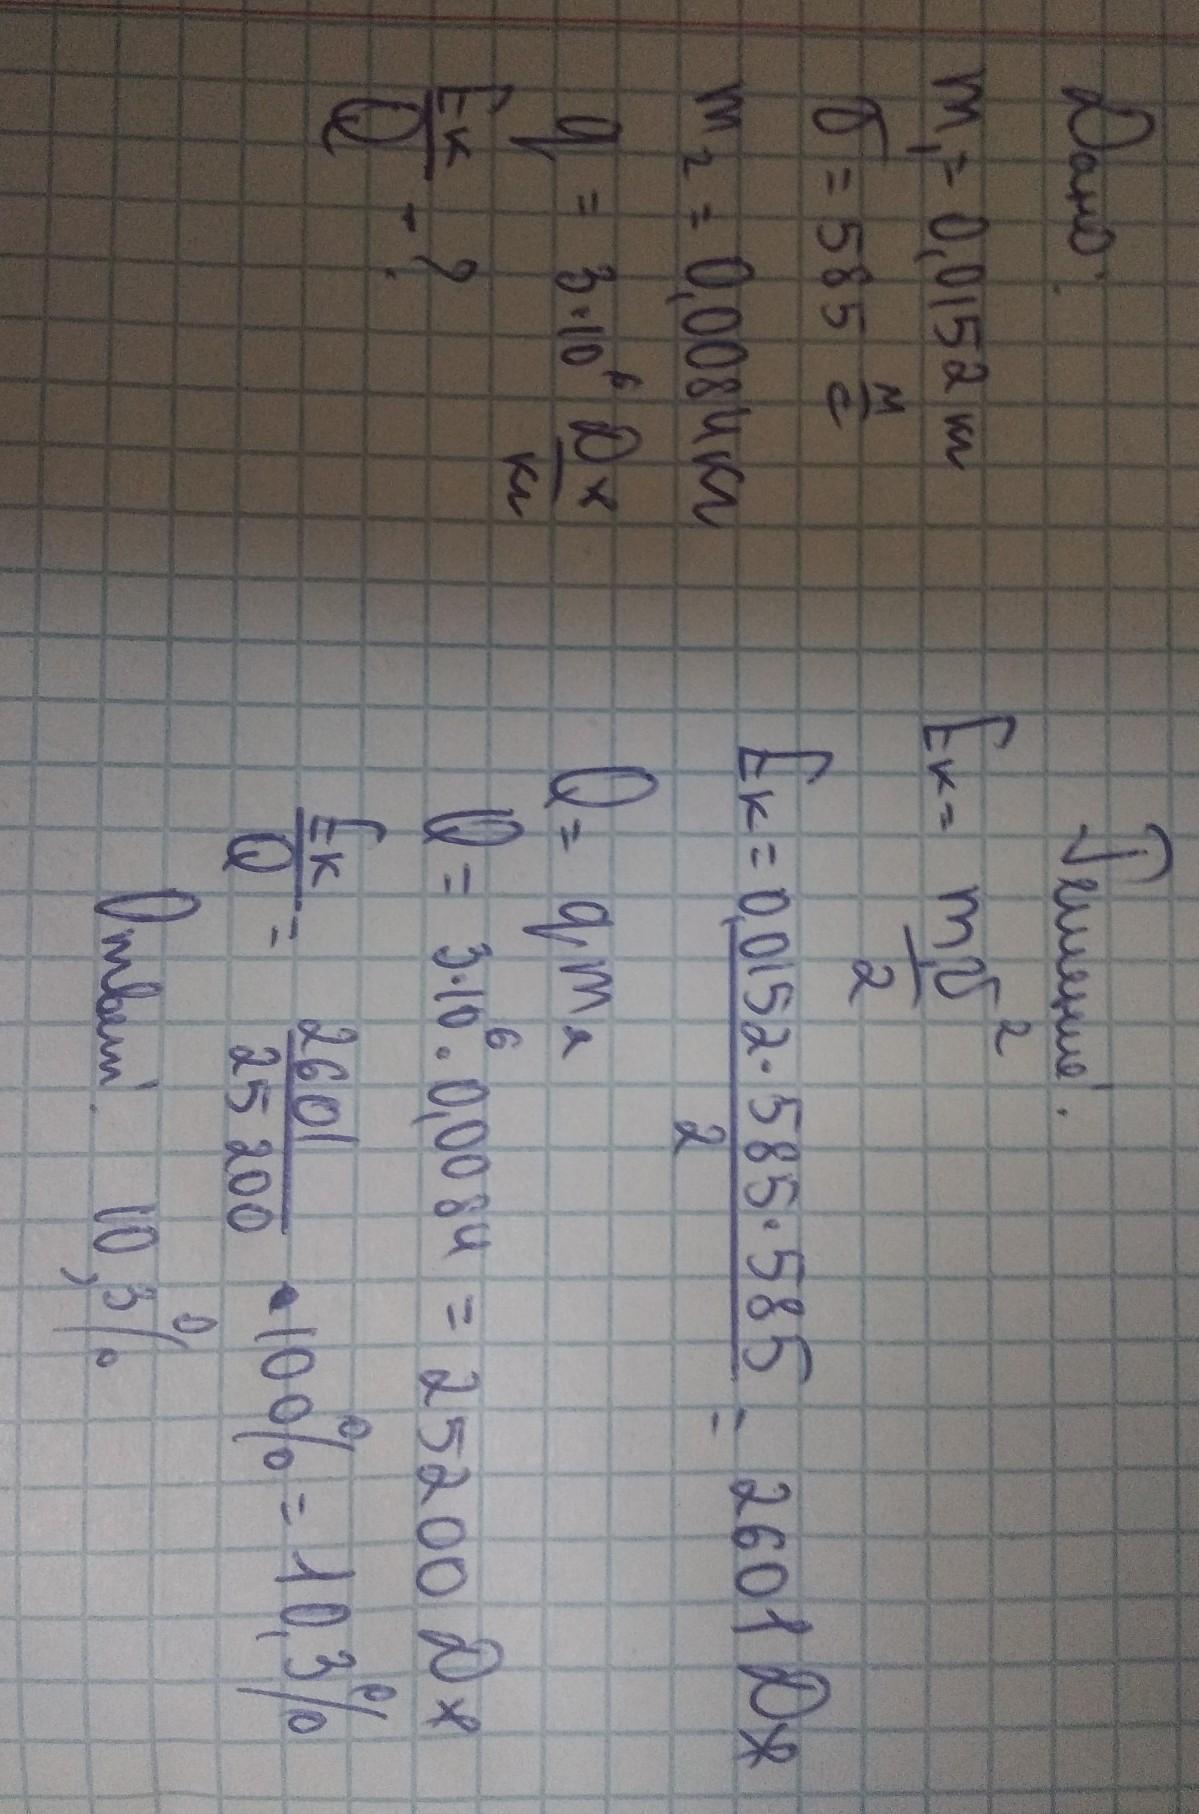 Дано:
m₁ = 0,0152 кг
υ = 585 м/с
m₂ = 0,0084 кг
q = 3·10⁶ Дж/кг
Eк/Q - ?
Решение:
Eк = m₁υ²/2
Eк = 0,0152·585·585/2 = 2601 Дж
Q = qm₂
Q = 3·10⁶·0,0084 = 25200 Дж
Eк/Q = 2601/25200 · 100% = 10,3%
Ответ: 10,3%